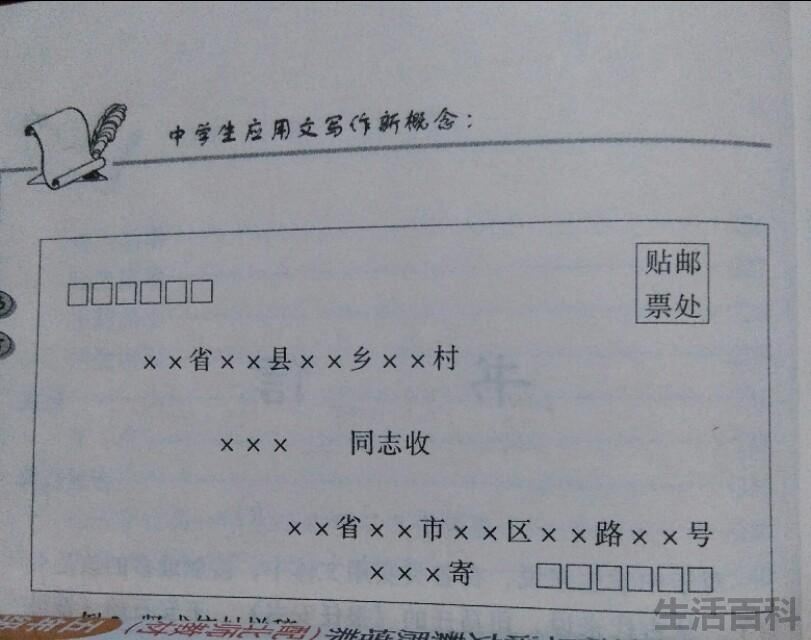 中学生应用文写作新概念：
贴邮
票处
□□□□□□
××省××县××乡××村
××× 同志收
××省××市××区××路××号
×××寄 □□□□□□
生活百科